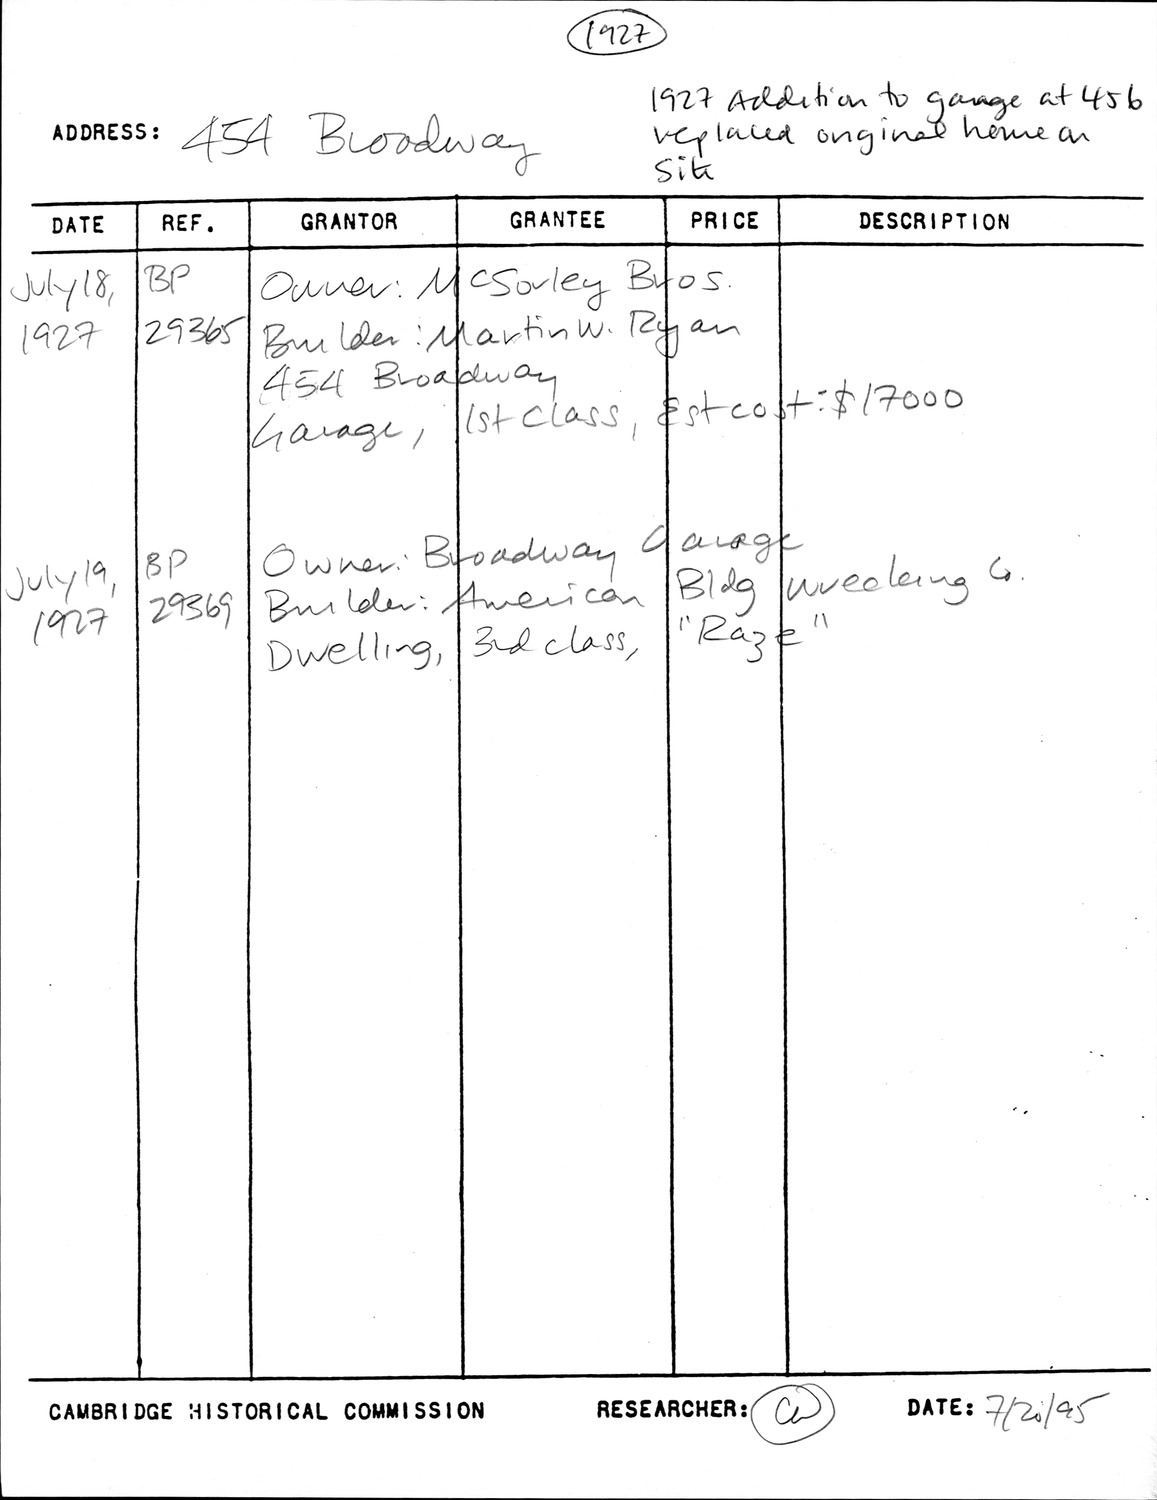 1927
1927 Addition to garage at 456
ADDRESS: 454 Broadway
replaced original home on
site
DATE REF. GRANTOR GRANTEE PRICE DESCRIPTION
July 18, BP Owner: McSorley Bros.
1927 29365 Builder: Martin W. Ryan
454 Broadway
Garage, 1st Class, Est cost: $17000
Owner: Broadway Garage
July 19, BP Builder: American Bldg Wrecking Co.
1927 29369 Dwelling, 3rd class, "Raze"
CAMBRIDGE HISTORICAL COMMISSION RESEARCHER: DATE: 7/20/95